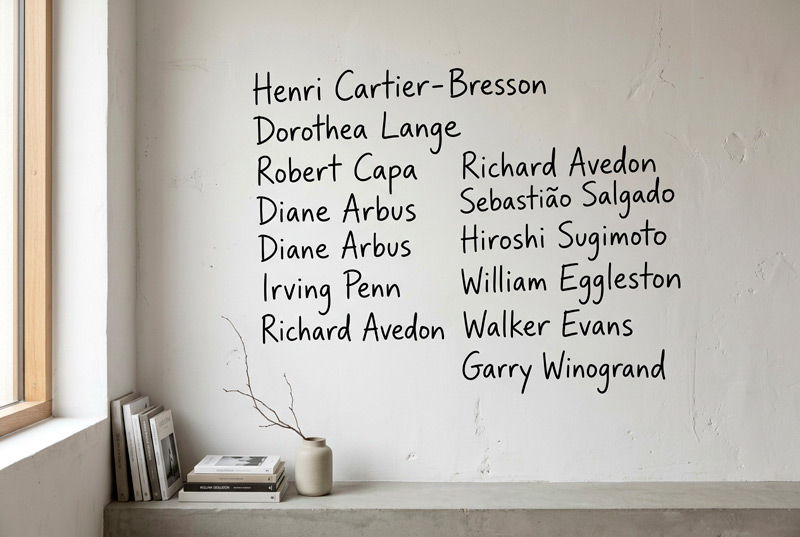 Henri Cartier-Bresson
Dorothea Lange
Robert Capa
Diane Arbus
Diane Arbus
Irving Penn
Richard Avedon
Richard Avedon
Sebastião Salgado
Hiroshi Sugimoto
William Eggleston
Walker Evans
Garry Winogrand